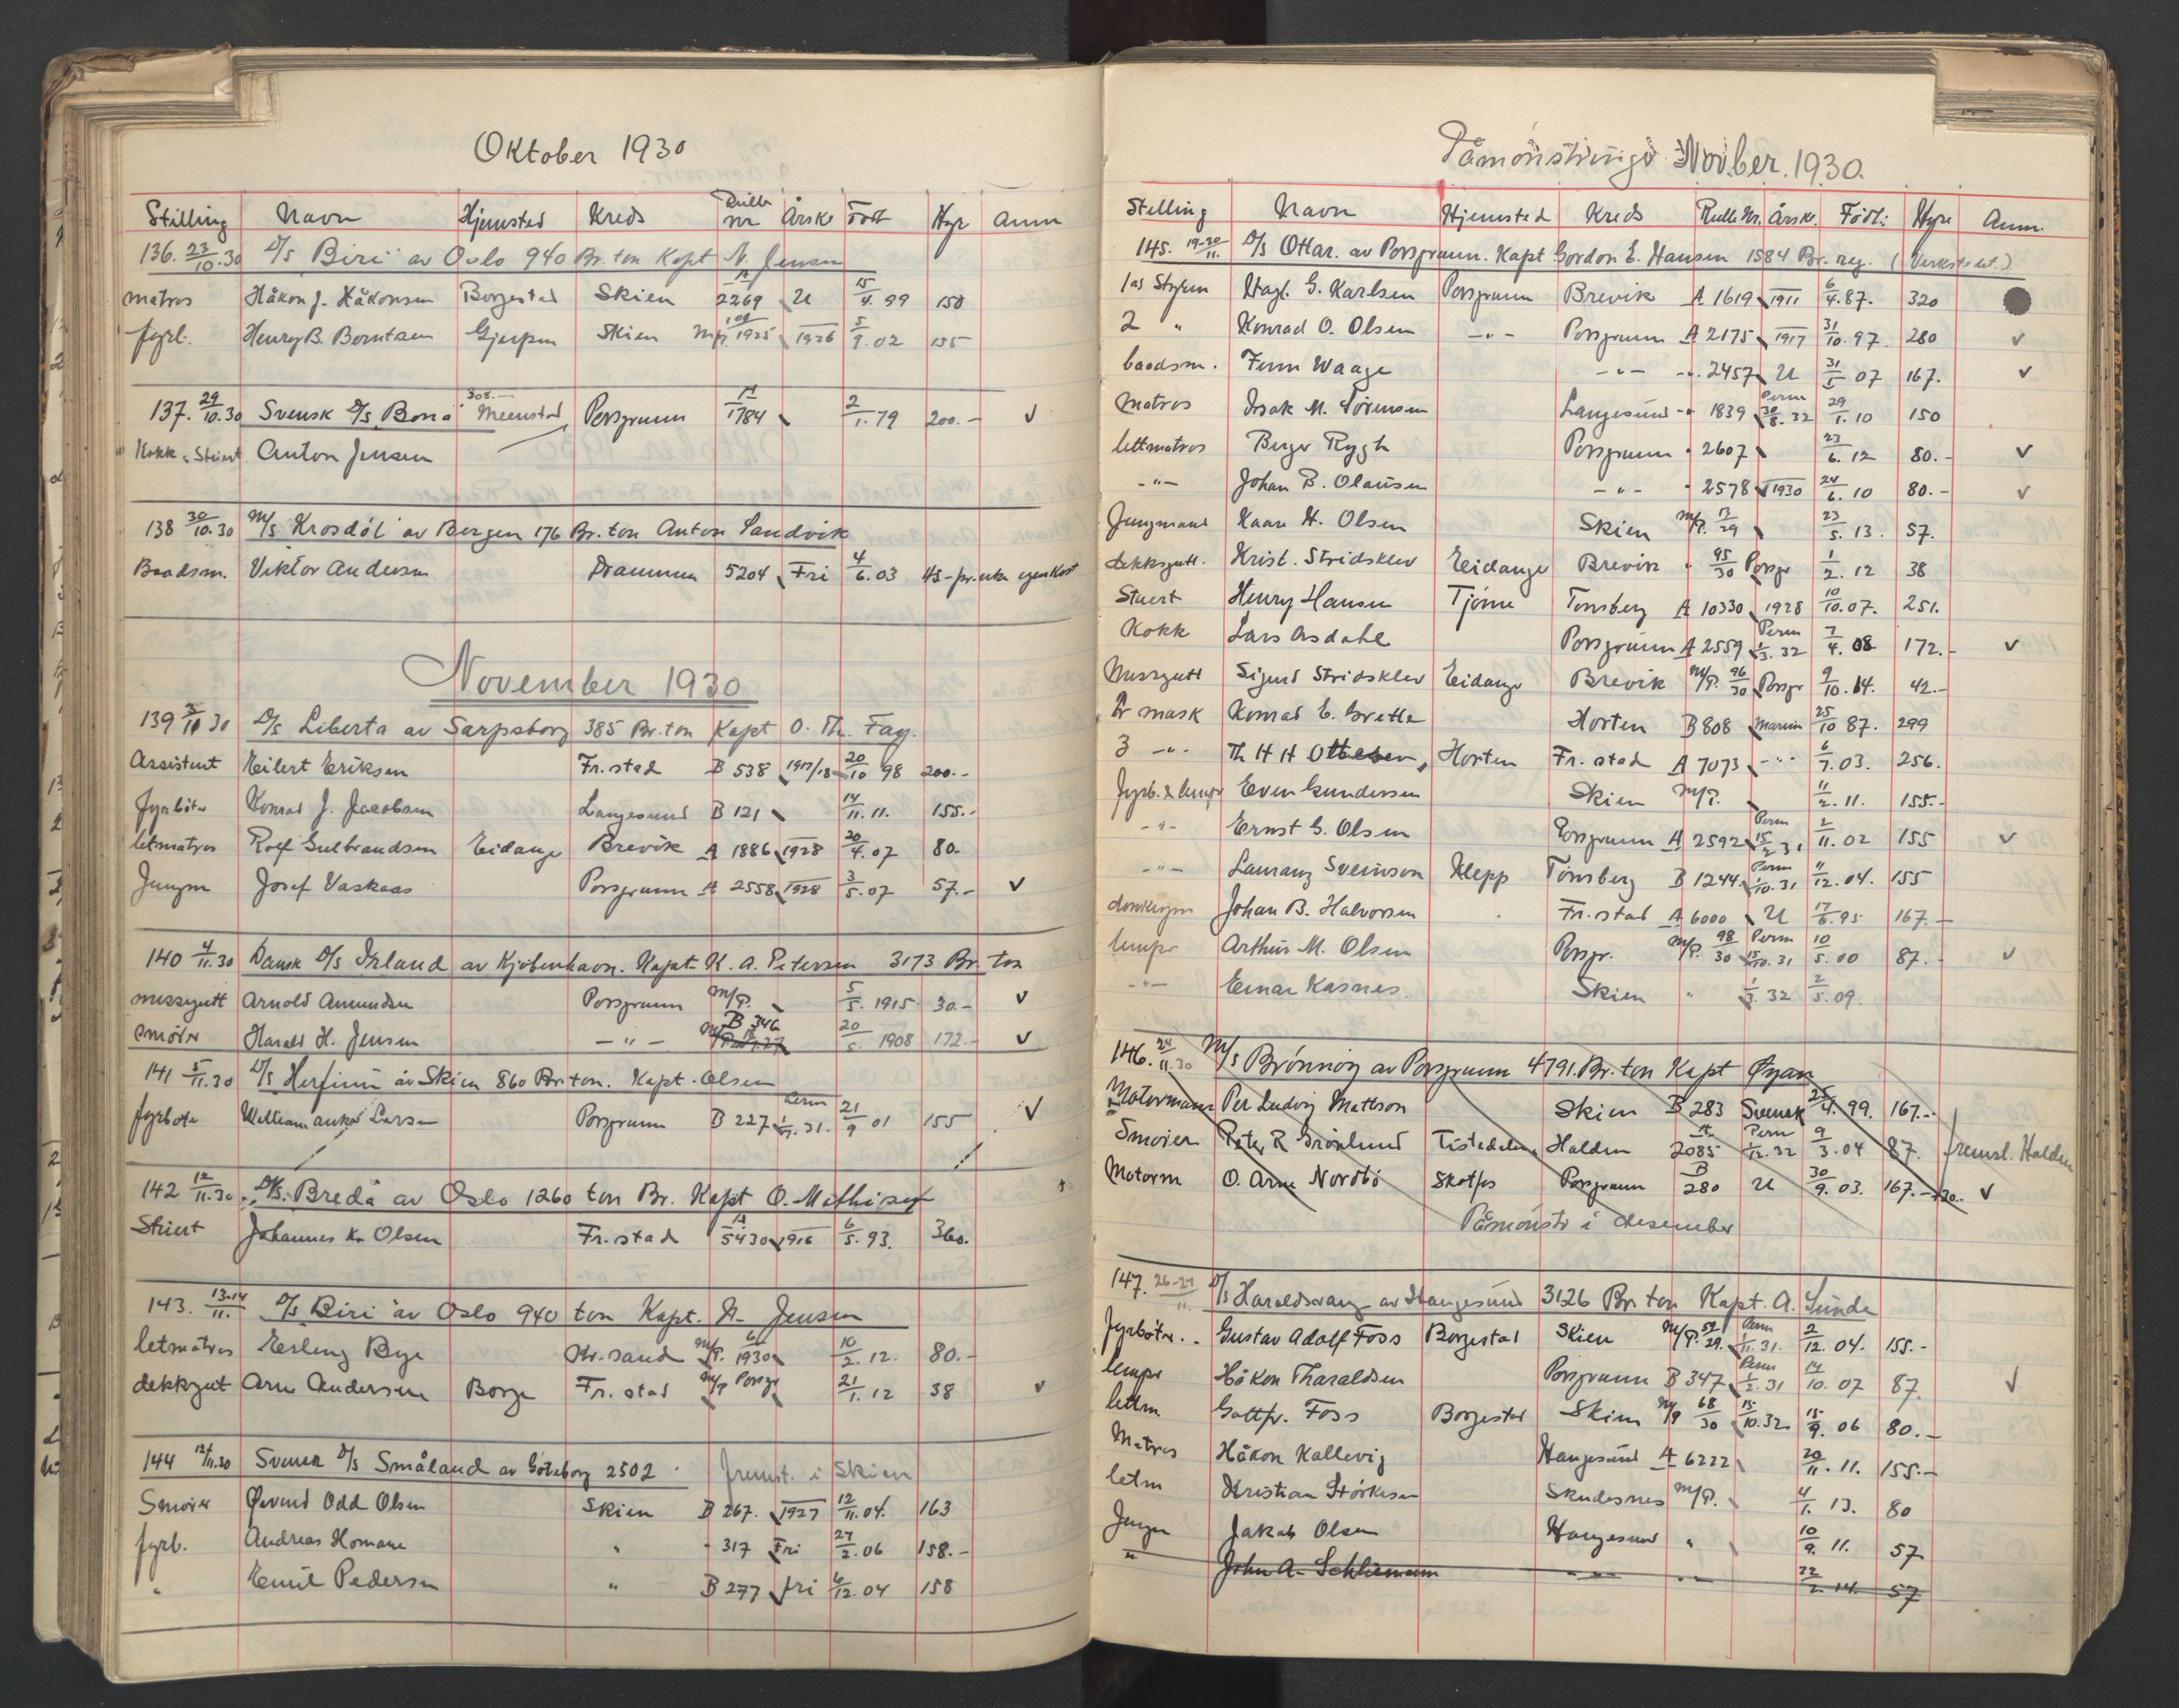 Oktober 1930
Stilling Navn Hjemsted Kreds Rulle nr Årskl Født Hyr Anm
136. 23/10.30 D/s "Biri" av Oslo 940 Br. ton Kapt N. Jensen
matros Håkon J. Håkonsen Borgestad Skien A 2269 U 15/4.99 150
fyrb. Henry B. Berntsen Gjerpen Skien M/P. 1925 1926 5/9.02 155
137. 29/10.30 Svensk D/s Bona 308.- Meenstad Porsgrunn A 1784 2/1.79 200.- v
Kokk & Stuert Anton Jensen
138 30/10.30 M/s Krosdøl av Bergen 176 Br. ton Anton Sandvik
Baadsm. Viktor Andersen Drammen 5204 Fri 4/6.03 45- pr. uke egen Kost
November 1930
139 3/11 30 D/s Liberta av Sarpsborg 385 Br. ton Kapt O. Th. Fag.
Assistent Eilert Eriksen Fr.stad B 538 1917/18 20/10 98 200.-
fyrbøter Konrad J. Jacobsen Langesund B 121 14/11.11. 155.-
letmatros Rolf Gulbrandsen Eidange Brevik A 1886 1928 20/4.07 80.
Jungm Josef Vaskaas Porsgrunn A 2558 1928 3/5.07 57.- v
140 4/11.30 Dansk D/s Irland av Kjøbenhavn. Kapt K. A. Petersen 3173 Br. ton
messegutt Arnold Amundsen Porsgrunn M/P. 5/5. 1915 30.- v
smører Harald H. Jensen -"- B 346 20/5. 1908 172.- v
141 5/11.30 D/s Herfinn av Skien 860 Br. ton. Kapt. Olsen
fyrbøter William Anker Larsen Porsgrunn B 227 Perm 1/11.31. 21/9 01 155 v
142 12/11.30. D/s. Breda av Oslo 1260 ton Br. Kapt O. Mathisen
Stuert Johannes K. Olsen Fr.stad A 5430 1916 6/5.93. 360.
143. 13-14/11. D/s Biri av Oslo 940 ton Kapt. N. Jensen
letmatros Erling Bye Kr.sand M/P. 6/1930 10/2.12. 80.-
dekkgut Arne Andersen Borge Fr.stad M/P Porsgr 21/1.12 38 v
144 12/11.30 Svensk D/s Småland av Göteborg 2502. fremst. i Skien
Smører Øivind Odd Olsen Skien B 267. 1927 12/11.04. 163
fyrb. Andreas Homane " " 317 Fri 27/2.06 158.-
" Emil Pedersen " B 277 fri 6/12.04 158
Påmønstringer Novber. 1930.
Stilling Navn Hjemsted Kreds Rulle Nr. Årskl. Født: Hyre Anm.
145. 19-20/11. D/s Ottar. av Porsgrunn. Kapt Gordon E. Hansen 1584 Br. reg. (Verkstedet.)
1as Styrm Hagl. G. Karlsen Porsgrunn Brevik A 1619 1911 6/4.87. 320
2 " Konrad O. Olsen -"- Porsgrunn A 2175 1917 31/10.97. 280 v
baadsm. Finn Waage -"- -"- 2457 U 31/5 07 167. v
Matros Isak M. Sørensen Langesund -"- 1839 Perm 30/8.32 29/1.10 150
lettmatros Berger Rygh Porsgrunn " 2607 23/6.12 80.- v
-"- Johan B. Olausen -"- " 2578 1930 24/6.10 80.- v
Jungmand Kaare H. Olsen Skien M/P. 13/29 23/5.13. 57.
dekksgutt. Krist. Stridsklev Eidange Brevik " 95/30 Porsgr 1/2.12 38
Stuert Henry Hansen Tjøme Tønsberg A 10330 1928 10/10.07. 251.
Kokk Lars Aasdahl Porsgrunn A 2559 Perm 1/3.32 7/4.08 172.- v
Messgutt Sigurd Stridsklev Eidange Brevik M/P. 96/30 Porsgr 9/10.14. 42.-
2r mask Konrad E. Grette Horten B 808 Marin 25/10 87. 299
3 -"- Th H H Ottesen, Horten Fr.stad A 7073 -"- 6/7.03. 256.
fyrb. & lemper Even Gundersen Skien M/P. 11/2.11. 155.-
-"- Ernst G. Olsen Porsgrunn A 2592 Perm 15/2 31 2/11.02 155 v
-"- Lauranz Svensson Klepp Tønsberg B 1244. Perm 1/10.31 11/12.04. 155
donkeym Johan B. Halvorsen Fr.stad A 6000 U 17/6.95 167.-
lemper Arthur M. Olsen Porsgr. M/P. 98/30 Perm 15/10.31 10/5.00 87.- v
-"- Einar Kasnes. Skien " 1/3.32 2/5.09.
146. 24/11.30 M/s Brønnøy av Porsgrunn 4791. Br. ton Kapt Øyan
Motormann Per Ludvig Mattson Skien B 283 Svensk 25/4.99. 167.-
Smører Peter R Grønlund Tistedalen Halden A 2085 Perm 1/12.32 9/3.04 87. fremst. Halden
Motorm O. Arne Nordbø Skotfos Porsgrunn B 280 U 30/9.03. 167.- v
Påmønstr i desember
147. 26-27/11. D/s Haraldsvang av Haugesund 3126 Br ton Kapt. A. Sunde
fyrbøter.. Gustav Adolf Foss Borgestad Skien M/P. 59/29. Perm 1/11.31. 2/12.04. 155.-
lemper Håkon Tharaldsen Porsgrunn B 347 Perm 1/2.31 14/10.07 87. v
lettm. Gottfr. Foss Borgestad Skien M/P 68/30 15/10.32 15/9.06 80.-
Matros Håkon Kallevig Haugesund A 6222 20/11.11. 155.-
letm Kristian Størkersen Skudesnes M/P. 4/1.13. 80
Jungm Jakob Olsen Haugesund " 10/9.11. 57
" John A. Schliemann -"- -"- 22/2.14. 57